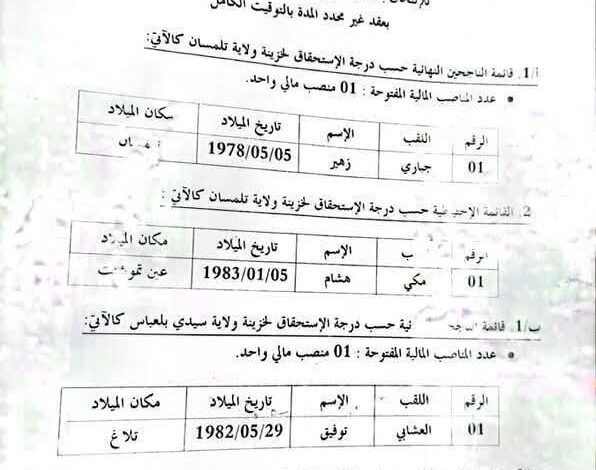 بعقد غير محدد المدة بالتوقيت الكامل
أ/1. قائمة الناجحين النهائية حسب درجة الإستحقاق لخزينة ولاية تلمسان كالآتي:
• عدد المناصب المالية المفتوحة : 01 منصب مالي واحد.
الرقم اللقب الإسم تاريخ الميلاد مكان الميلاد
01 جباري زهير 1978/05/05
2. القائمة حسب درجة الإستحقاق لخزينة ولاية تلمسان كالآتي :
الرقم الإسم تاريخ الميلاد مكان الميلاد
01 مكي هشام 1983/01/05 عين
ب/1. قائمة حسب درجة الإستحقاق لخزينة ولاية سيدي بلعباس كالآتي:
• عدد المناصب المالية المفتوحة : 01 منصب مالي واحد.
الرقم اللقب الإسم تاريخ الميلاد مكان الميلاد
01 العشابي توفيق 1982/05/29 تلاغ